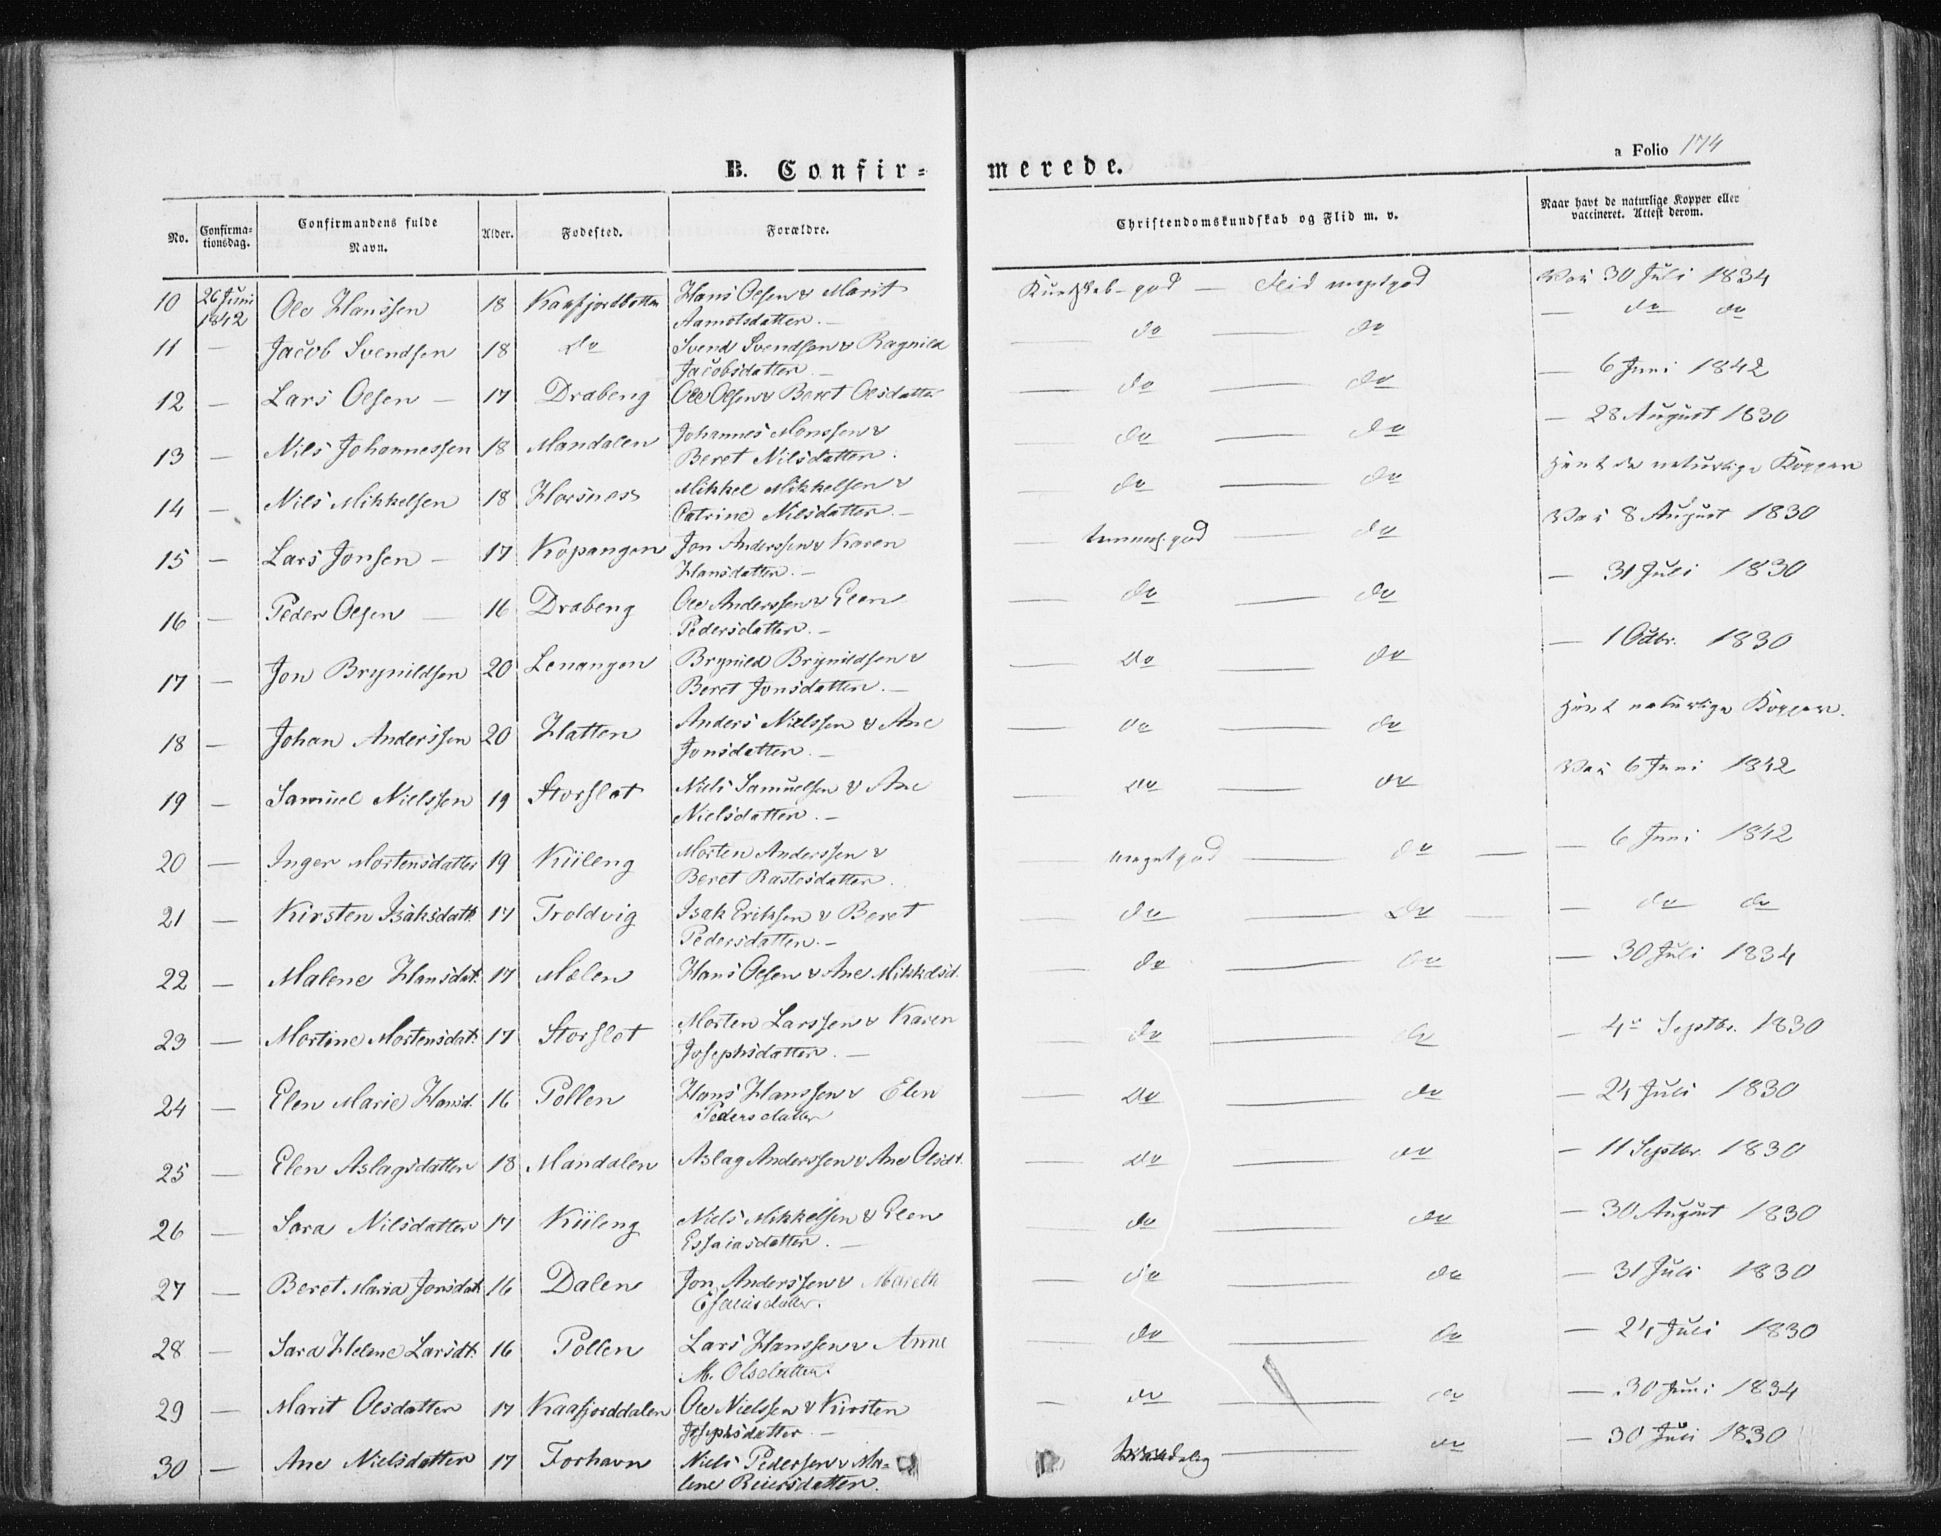 a Folio 174
B. Confir- merede.
No. Confirma-tionsdag. Confirmandens fulde Navn. Alder. Fodested. Forældre. Christendomskundskab og Flid m. v. Naar havt de naturlige Kopper eller vaccineret. Attest derom.
10 26 Juni 1842 Ole Hanssen 18 Kaafjordbotten Hans Olsen & Marit Kundskab god — Flid megetgod Vac 30 Juli 1834
Aamotsdatter. —
11 — Jacob Svendsen 18 do Svend Svendsen & Ragnild — do — do — do do
Jacobsdatter. —
12 — Lars Olsen — 17 Drabeng Ole Olsen & Beret Olsdatter — do — do — 6 Juni 1842
13 — Nils Johannessen 18 Mandalen Johannes Monssen & — do — do — 28 August 1830
Beret Nilsdatter.
14 — Nils Mikkelsen 18 Horsnes Mikkel Mikkelsen & — do — do havt de naturlige Kopper
Catrine Nilsdatter. —
15 — Lars Jonsen — 17 Kopangen Jon Anderssen & Karen — temmel. god do Vac 8 August 1830
Hansdatter. —
16 — Peder Olsen — 16 Drabeng Ole Anderssen & Elen — do — do — 31 Juli 1830
Pedersdatter. —
17 — Jon Brynildsen 20 Lenangen Brynild Brynildsen & — do — do — 1 Octbr. 1830
Beret Jonsdatter. —
18 — Johan Anderssen 20 Hatten Anders Nielssen & Ane — do — do havt naturlige Kopper.
Jonsdatter. —
19 — Samuel Nielssen 19 Storslet Niels Samuelsen & Ane — do — do Vac 6 Juni 1842
Nielsdatter. —
20 — Inger Mortensdatter 19 Kiileng Morten Anderssen & megetgod — do — — 6 Juni 1842
Beret Rastesdatter.
21 — Kirsten Isaksdatt. 17 Troldvig Isak Eriksen & Beret — do — do — — do do
Pedersdatter. —
22 — Malene Hansdat. 17 Molen Hans Olsen & Ane Mikkelsd. — do — do — 30 Juli 1834
23 — Mortine Mortensdat. 17 Storslet Morten Larssen & Karen — do — do — 4de Septbr. 1830
Josephsdatter. —
24 — Elen Marie Hansd. 16 Pollen Hans Hanssen & Elen — do — do — 24 Juli 1830
Pedersdatter
25 — Elen Aslagsdatter 18 Mandalen Aslag Anderssen & Ane Olsdt. — do — do — 11 Septbr. 1830
26 — Sara Nilsdatter 17 Kiileng Niels Mikkelsen & Elen — do — do — 30 August 1830
Essaiasdatter. —
27 — Beret Maria Jonsdatt. 16 Dalen Jon Anderssen & Mareth — do — do — 31 Juli 1830
Esaiasdatter.
28 — Sara Helene Larsdt. 16 Pollen Lars Hanssen & Anne — do — do — 24 Juli 1830
M. Olsdatter.
29 — Marit Olsdatter 17 Kaafjorddalen Ole Nielssen & Kirsten — do — do — 30 Juni 1834
Josephsdatter. —
30 — Ane Nielsdatter 17 Forhavn Niels Pedersen & Ma- — do — 30 Juli 1830
lene Reiersdatter.